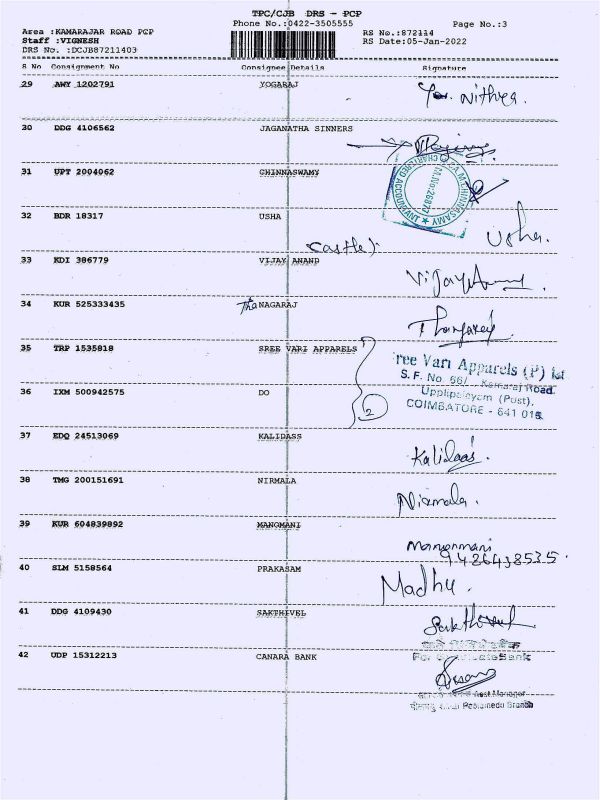 TPC/CJB DRS - PCP
Phone No.:0422-3505555
Page No.:3
Area :KAMARAJAR ROAD PCP
Staff :VIGNESH
DRS No. :DCJB87211403
RS No.:872114
RS Date:05-Jan-2022
S No Consignment No Consignee Details Signature
29 AWY 1202791 YOGARAJ Nithya.
30 DDG 4106562 JAGANATHA SINNERS
31 UPT 2004062 CHINNASWAMY
CHARTERED ACCOUNTANT
32 BDR 18317 USHA Usha.
33 KDI 386779 VIJAY ANAND Vijay Anand
34 KUR 525333435 Tha NAGARAJ Thangaraj
35 TRP 1535818 SREE VARI APPARELS
ree Vari Apparels (P) Ltd
S. F. No. 66/ , Kamaraj Road,
Uppilipalayam (Post),
COIMBATORE - 641 015
36 IXM 500942575 DO 2
37 EDQ 24513069 KALIDASS Kalidaas.
38 TMG 200151691 NIRMALA Nirmala.
39 KUR 604839892 MANOMANI Manonmani
9486438535.
40 SLM 5158564 PRAKASAM Madhu.
41 DDG 4109430 SAKTHIVEL Sakthivel
42 UDP 15312213 CANARA BANK
Asst.Manager
Peelamedu Branch